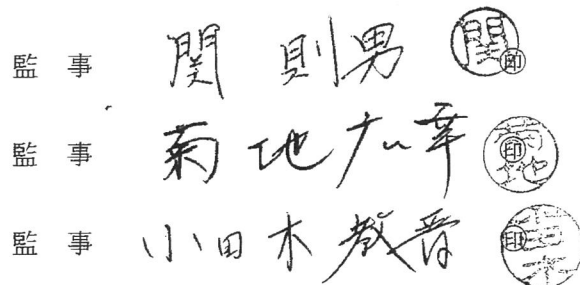 監事 関 則男 ㊞
監事 菊地 ㊞
監事 小田木 ㊞